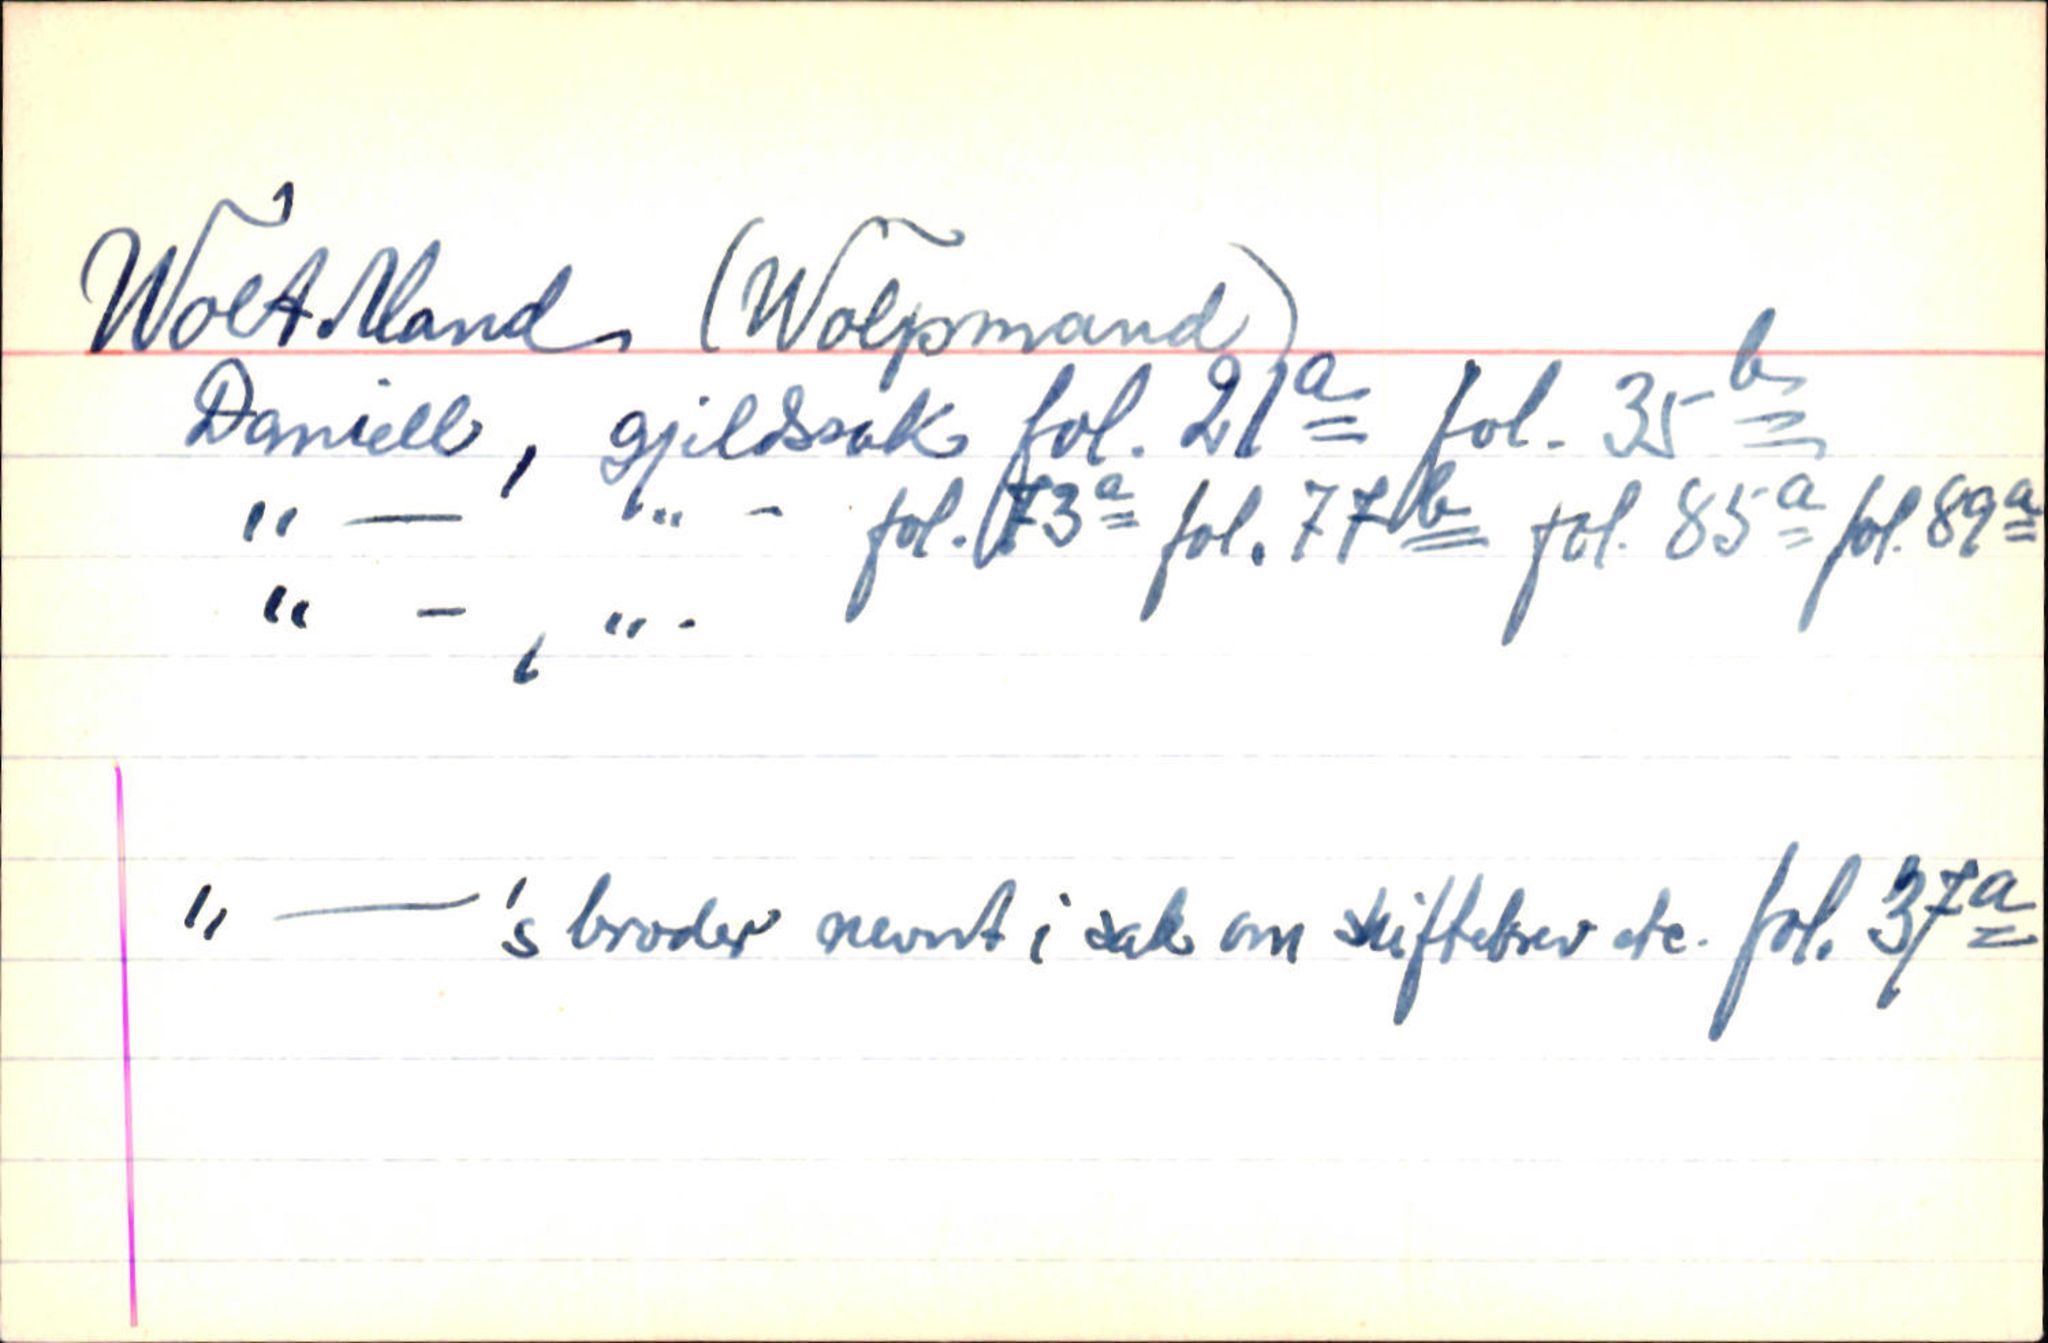 WoltMand, (Wolpmand)
Daniell, gjildssak fol. 21a fol. 35b
" — " - fol. 73a fol. 77b fol. 85a fol. 89a
" - , " -
" — 's broder nevnt i sak om skiftebrev etc. fol. 37a